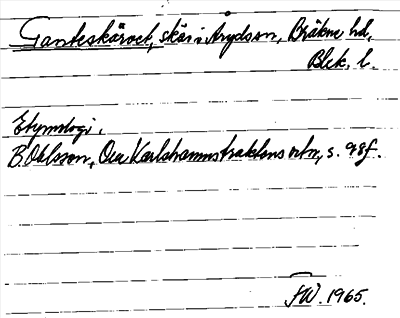 Tanteskäret, skär i Arydsån, Bräkne hd,
Blek. l.
Etymologi.
B. Ohlsson, Om Karlshamnstraktens ortn., s. 98f.
HW. 1965.